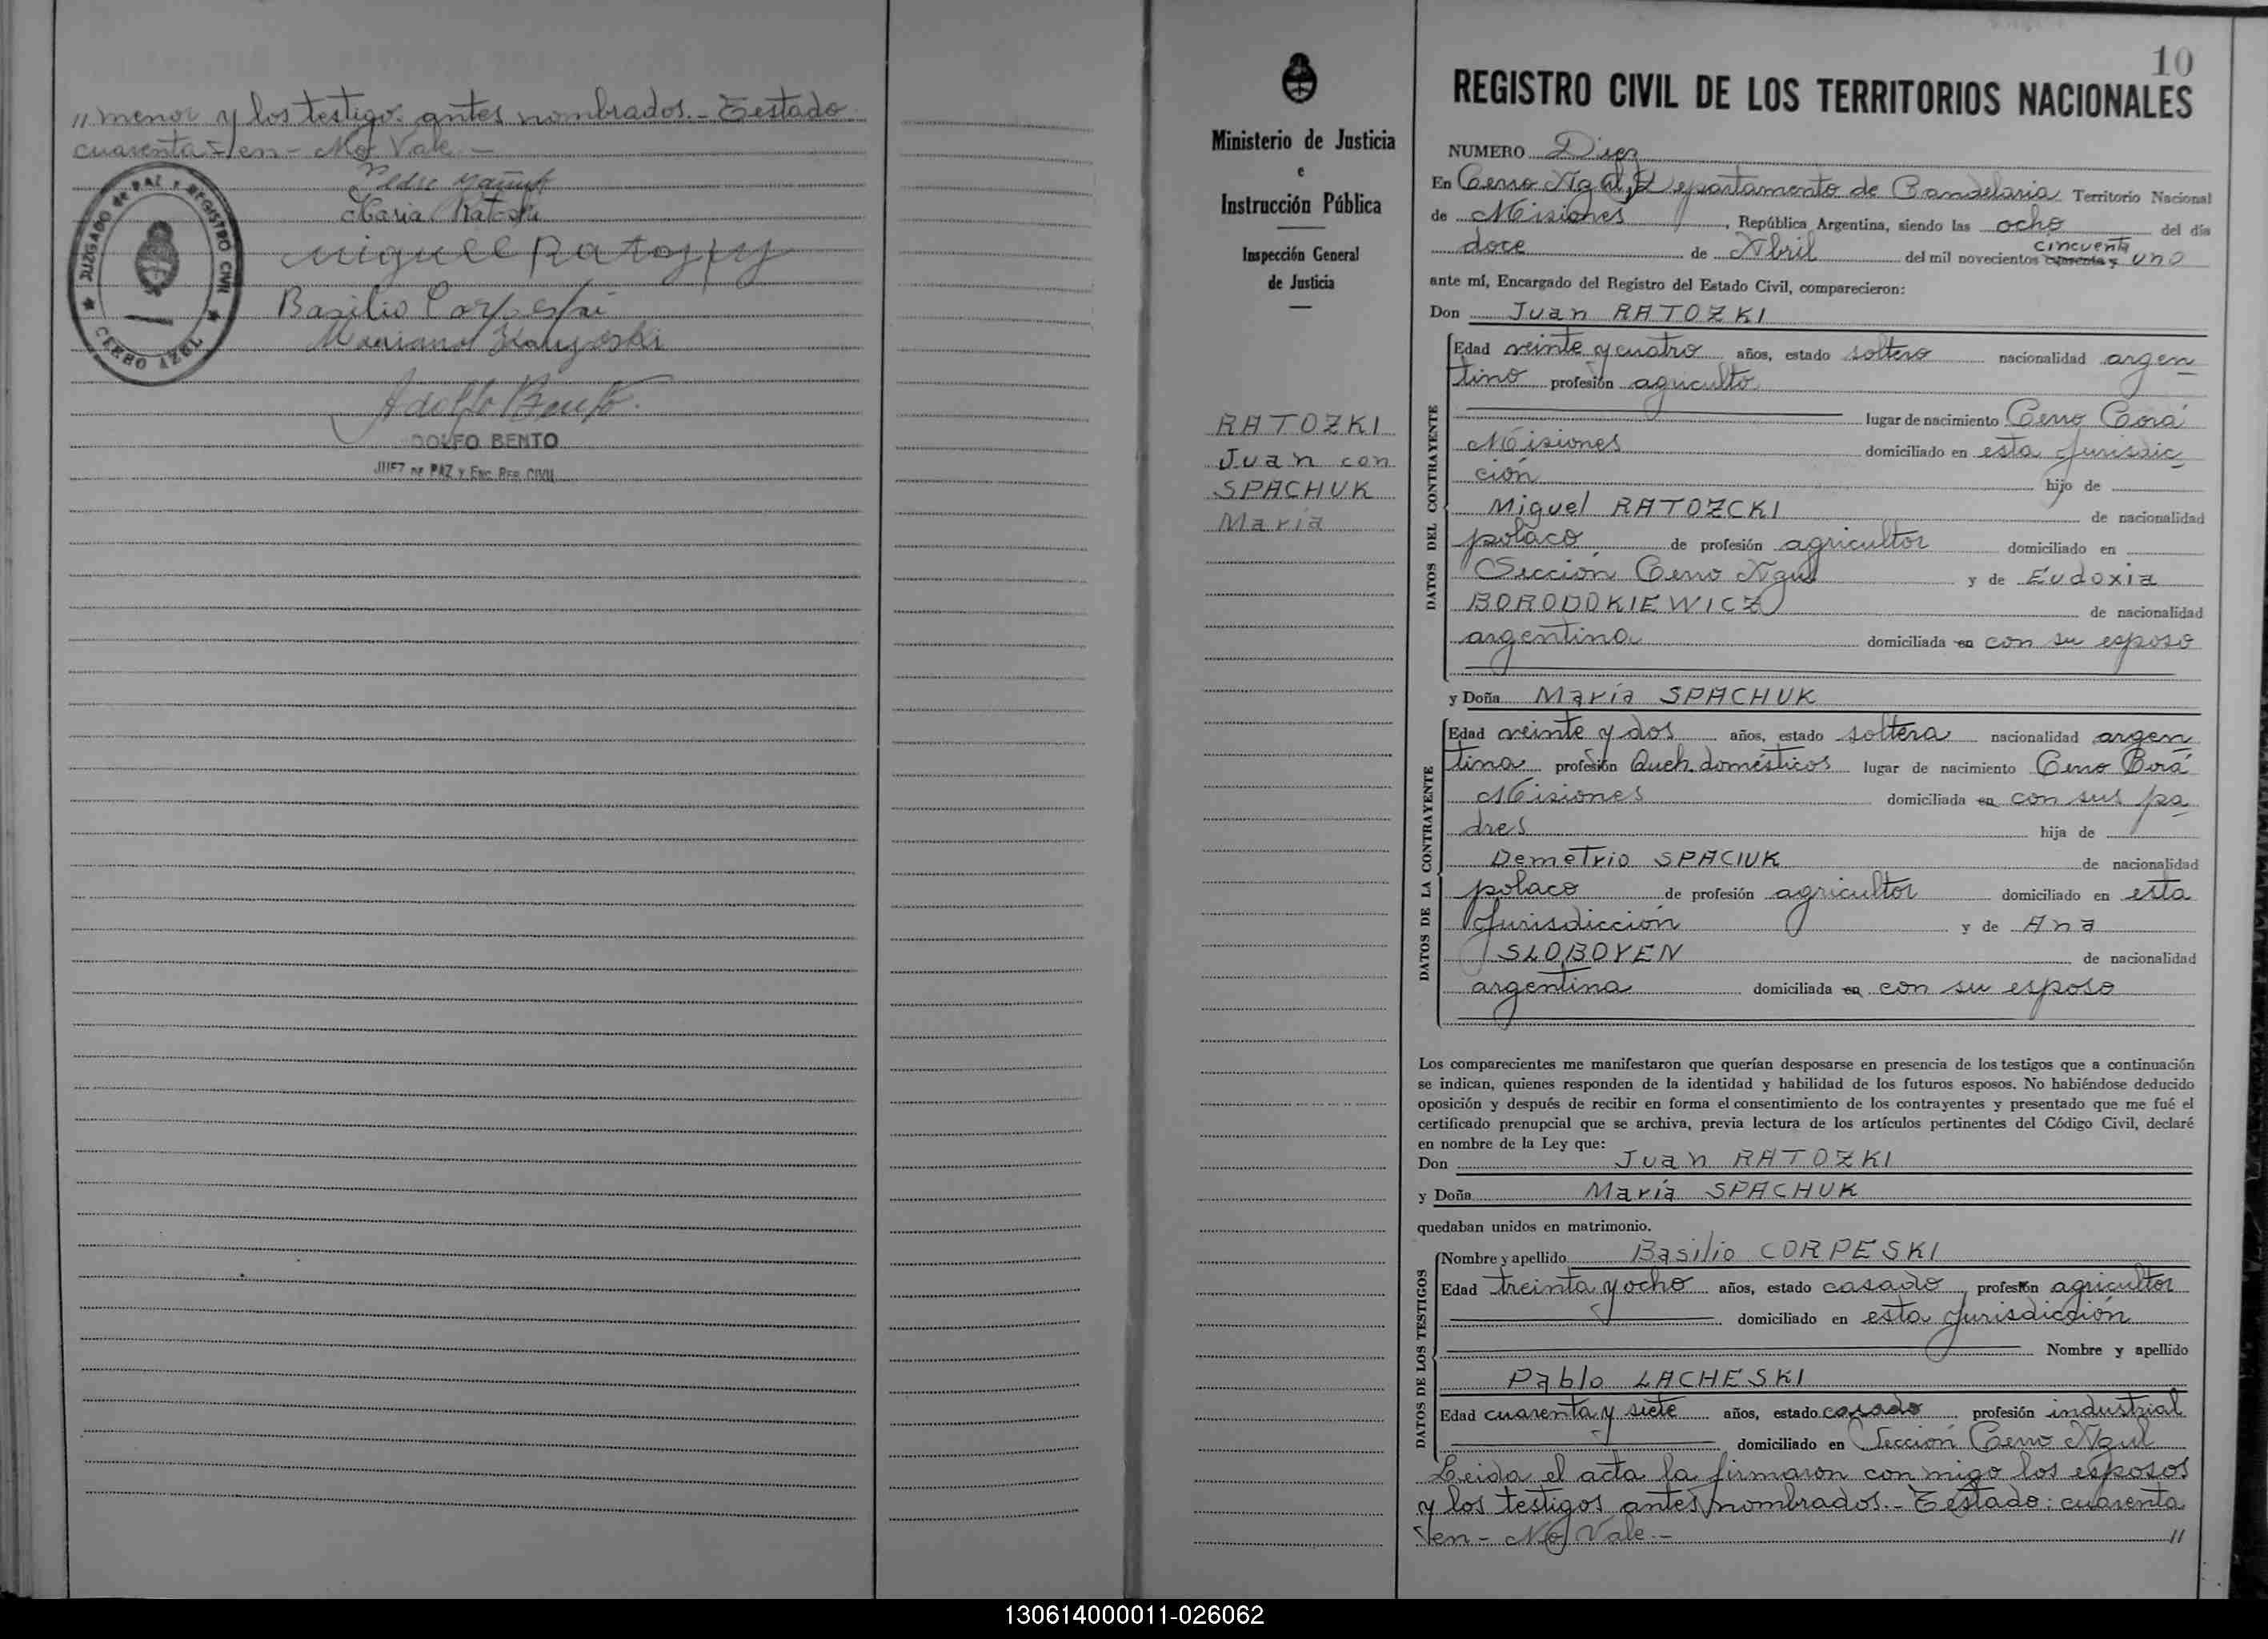 " menor y los testigos antes nombrados.- Testado
cuarenta - en - No Vale -
JUZGADO de PAZ Y REGISTRO CIVIL
CERRO AZUL
Pedro
Maria
Miguel Ratozky
Basilio Corpeski
Mariano
Adolfo Bento
DOLFO BENTO
JUEZ DE PAZ Y ENC. REG. CIVIL
Ministerio de Justicia
e
Instrucción Pública
Inspección General
de Justicia
RATOZKI
Juan con
SPACHUK
María
10
REGISTRO CIVIL DE LOS TERRITORIOS NACIONALES
NUMERO Diez
En Cerro Azul, Departamento de Candelaria Territorio Nacional
de Misiones, República Argentina, siendo las ocho del día
cincuenta
doce de Abril del mil novecientos cuarenta y uno
ante mí, Encargado del Registro del Estado Civil, comparecieron:
Don Juan RATOZKI
DATOS DEL CONTRAYENTE
Edad veinte y cuatro años, estado soltero nacionalidad argen
tino profesión agriculto
lugar de nacimiento Cerro Corá
Misiones domiciliado en esta Jurisdic
ción hijo de
Miguel RATOZCKI de nacionalidad
polaco de profesión agricultor domiciliado en
Sección Cerro Azul y de Eudoxia
BORODOKIEWICZ de nacionalidad
argentina domiciliada en con su esposo
y Doña María SPACHUK
DATOS DE LA CONTRAYENTE
Edad veinte y dos años, estado soltera nacionalidad argen
tina profesión Queh. domésticos lugar de nacimiento Cerro Corá
Misiones domiciliada en con sus pa
dres hija de
Demetrio SPACIUK de nacionalidad
polaco de profesión agricultor domiciliado en esta
Jurisdicción y de Ana
SLOBOYEN de nacionalidad
argentina domiciliada en con su esposo
Los comparecientes me manifestaron que querían desposarse en presencia de los testigos que a continuación
se indican, quienes responden de la identidad y habilidad de los futuros esposos. No habiéndose deducido
oposición y después de recibir en forma el consentimiento de los contrayentes y presentado que me fué el
certificado prenupcial que se archiva, previa lectura de los artículos pertinentes del Código Civil, declaré
en nombre de la Ley que:
Don Juan RATOZKI
y Doña María SPACHUK
quedaban unidos en matrimonio.
DATOS DE LOS TESTIGOS
Nombre y apellido Basilio CORPESKI
Edad treinta y ocho años, estado casado profesión agricultor
domiciliado en esta Jurisdicción
Nombre y apellido
Pablo LACHESKI
Edad cuarenta y siete años, estado casado profesión industrial
domiciliado en Sección Cerro Azul
Leida el acta la firmaron con migo los esposos
y los testigos antes nombrados.- Testado: cuarenta
en - No Vale.- "
130614000011-026062